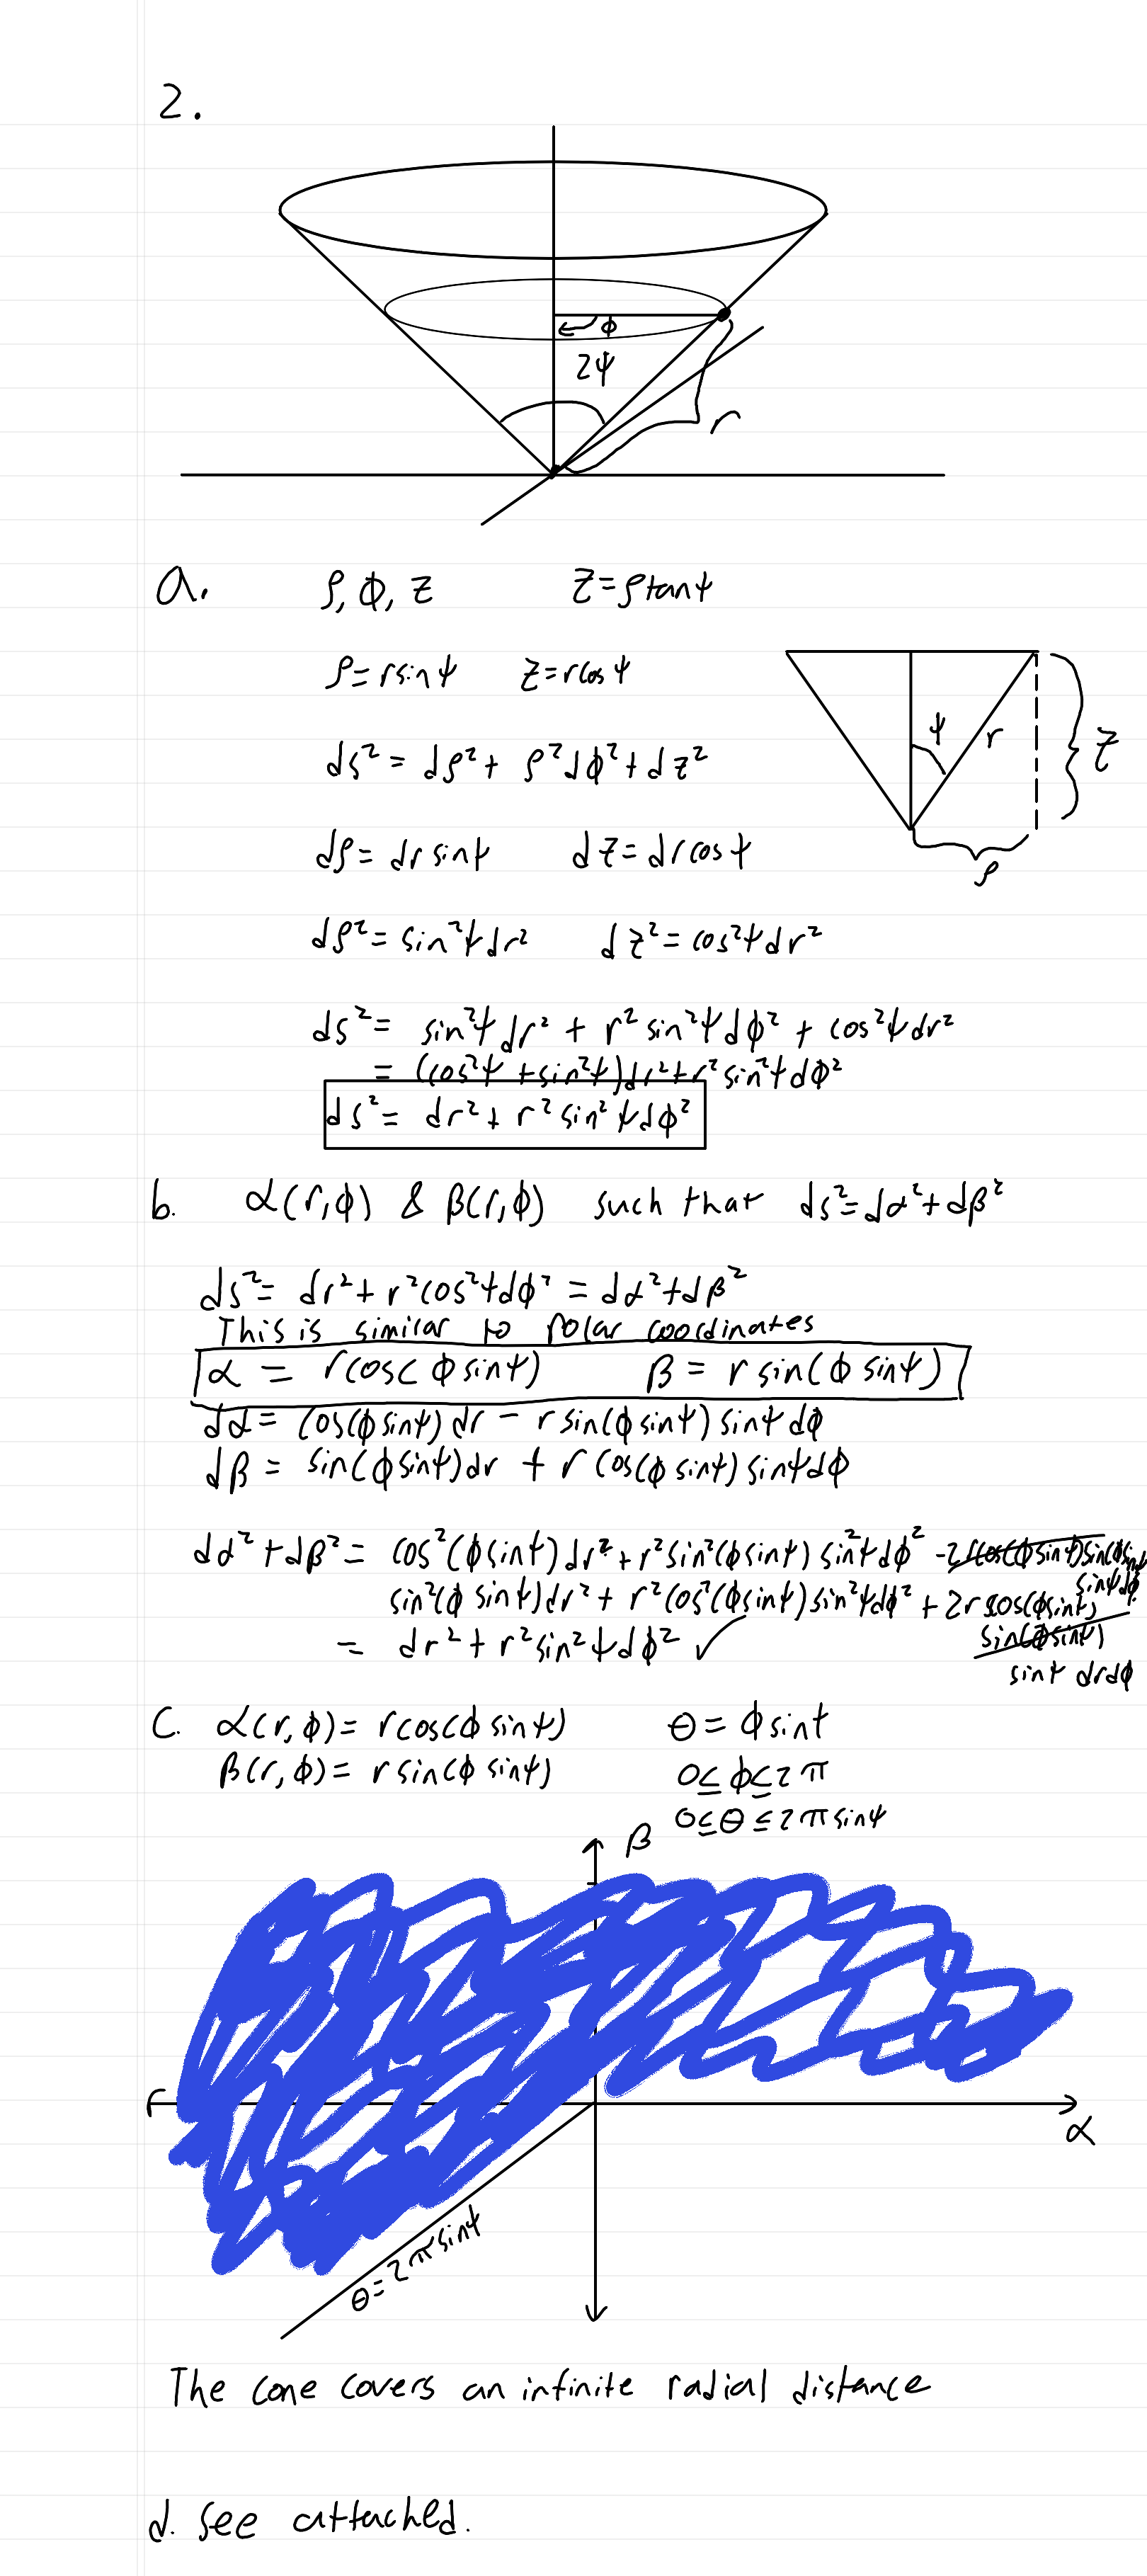 2.
ϕ
2ψ
r
a. ρ, ϕ, z z = ρtanψ
ρ = rsinψ z = rcosψ
ψ r z
ds² = dρ² + ρ²dϕ² + dz²
dρ = dr sinψ dz = drcosψ
ρ
dρ² = sin²ψdr² dz² = cos²ψdr²
ds² = sin²ψdr² + r²sin²ψdϕ² + cos²ψdr²
= (cos²ψ + sin²ψ)dr² + r²sin²ψdϕ²
ds² = dr² + r²sin²ψdϕ²
b. α(r,ϕ) & β(r,ϕ) such that ds² = dα² + dβ²
ds² = dr² + r²cos²ψdϕ² = dα² + dβ²
This is similar to polar coordinates
α = rcos(ϕ sinψ) β = r sin(ϕ sinψ)
dα = cos(ϕ sinψ)dr − rsin(ϕ sinψ) sinψ dϕ
dβ = sin(ϕ sinψ)dr + r cos(ϕ sinψ) sinψdϕ
dα² + dβ² = cos²(ϕ sinψ)dr² + r²sin²(ϕ sinψ) sin²ψdϕ² − 2rcos(ϕ sinψ)sin(ϕ sinψ) sinψdϕ
sin²(ϕ sinψ)dr² + r²cos²(ϕ sinψ)sin²ψdϕ² + 2r cos(ϕ sinψ)
sin(ϕ sinψ)
sinψ drdϕ
= dr² + r²sin²ψdϕ² ✓
c. α(r,ϕ) = rcos(ϕ sinψ) θ = ϕ sinψ
β(r,ϕ) = rsin(ϕ sinψ) 0 ≤ ϕ ≤ 2π
0 ≤ θ ≤ 2π sinψ
β
α
θ = 2π sinψ
The cone covers an infinite radial distance
d. See attached.